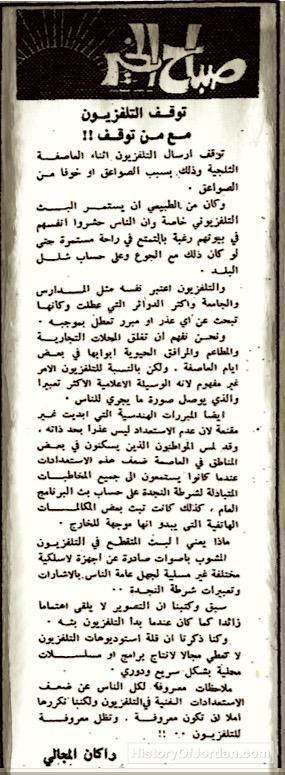 صباح الخير
توقف التلفزيون
مع من توقف !!
توقف ارسال التلفزيون اثناء العاصفة
الثلجية وذلك بسبب الصواعق او خوفا من
الصواعق .
وكان من الطبيعي ان يستمر البث
التلفزيوني خاصة وان الناس حشروا انفسهم
في بيوتهم رغبة بالتمتع في راحة مستمرة حتى
لو كان ذلك مع الجوع وعلى حساب شلل
البلد .
والتلفزيون اعتبر نفسه مثل المدارس
والجامعة واكثر الدوائر التي عطلت وكانها
تبحث عن اي عذر او مبرر تعطل بموجبه .
ونحن نفهم ان تغلق المحلات التجارية
والمطاعم والمرافق الحيوية ابوابها في بعض
ايام العاصفة . ولكن بالنسبة للتلفزيون الامر
غير مفهوم لانه الوسيلة الاعلامية الاكثر تعبيرا
والذي يوصل صورة ما يجري للناس .
ايضا المبررات الهندسية التي ابديت غير
مقنعة لان عدم الاستعداد ليس عذرا بحد ذاته .
وقد لمس المواطنون الذين يسكنون في بعض
المناطق في العاصمة ضعف هذه الاستعدادات
عندما كانوا يستمعون الى جميع المخاطبات
المتبادلة لشرطة النجدة على حساب بث البرنامج
العام . كذلك كانت تبث بعض المكالمات
الهاتفية التي يبدو انها موجهة للخارج .
ماذا يعني البث المتقطع في التلفزيون
المشوب باصوات صادرة عن اجهزة لاسلكية
مختلفة غير مسلية لجهل عامة الناس بالاشارات
وتعبيرات شرطة النجدة ..
سبق وكتبنا ان التصوير لا يلقى اهتماما
زائدا كما كان عندما بدا التلفزيون بثه .
وكنا ذكرنا ان قلة استوديوهات التلفزيون
لا تعطي مجالا لانتاج برامج او مسلسلات
محلية بشكل سريع ودوري .
ملاحظات معروفة لكل الناس عن ضعف
الاستعدادات الفنية في التلفزيون ولكننا نكررها
املا ان تكون معروفة . وتظل معروفة
للتلفزيون .. !!
راكان المجالي
HistoryOfJordan.com